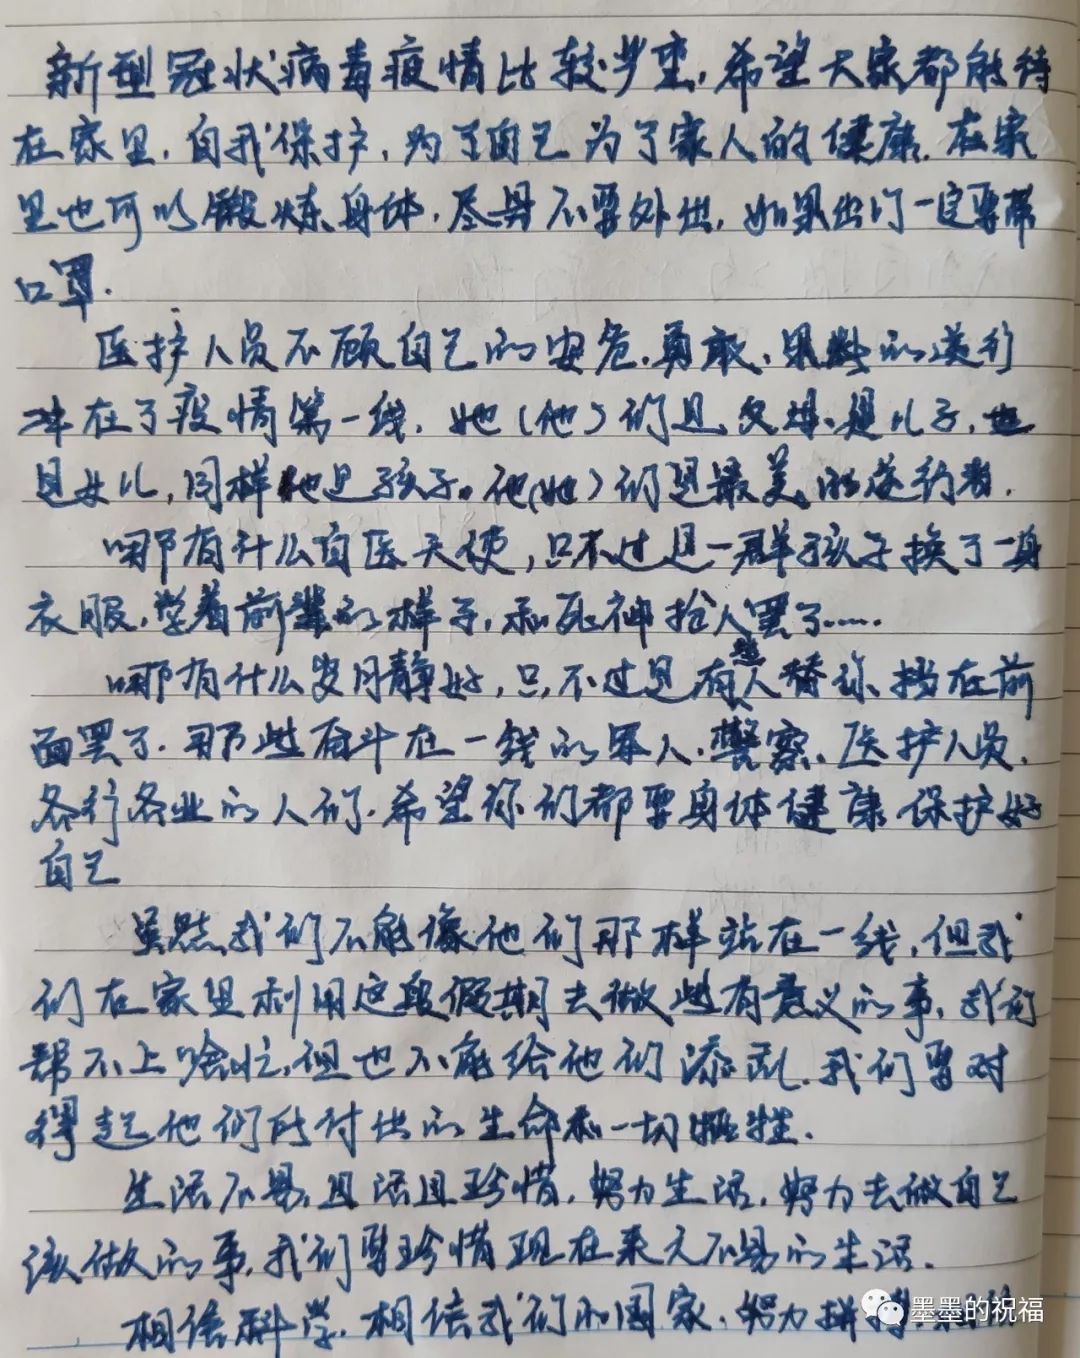 新型冠状病毒疫情比较严重,希望大家都能待
在家里.自我保护,为了自己为了家人的健康.在家
里也可以锻炼身体.尽量不要外出,如果出门一定要带
口罩.
医护人员不顾自己的安危.勇敢、果断的逆行
冲在了疫情第一线.她(他)们是父母、是儿子,也
是女儿,同样也是孩子。他(她)们是最美的逆行者.
哪有什么白医天使,只不过是一群孩子换了一身
衣服,学着前辈的样子,和死神抢人罢了……
哪有什么岁月静好,只不过是有些人替你挡在前
面罢了.那些奋斗在一线的军人.警察.医护人员.
各行各业的人们.希望你们都要身体健康保护好
自己
虽然我们不能像他们那样站在一线,但我
们在家里利用这段假期去做些有意义的事,我们
帮不上啥忙,但也不能给他们添乱.我们要对
得起他们所付出的生命和一切牺牲.
生活不易,且活且珍惜,努力生活,努力去做自己
该做的事,我们要珍惜现在来之不易的生活.
相信科学,相信我们的国家,努力拼搏
墨墨的祝福